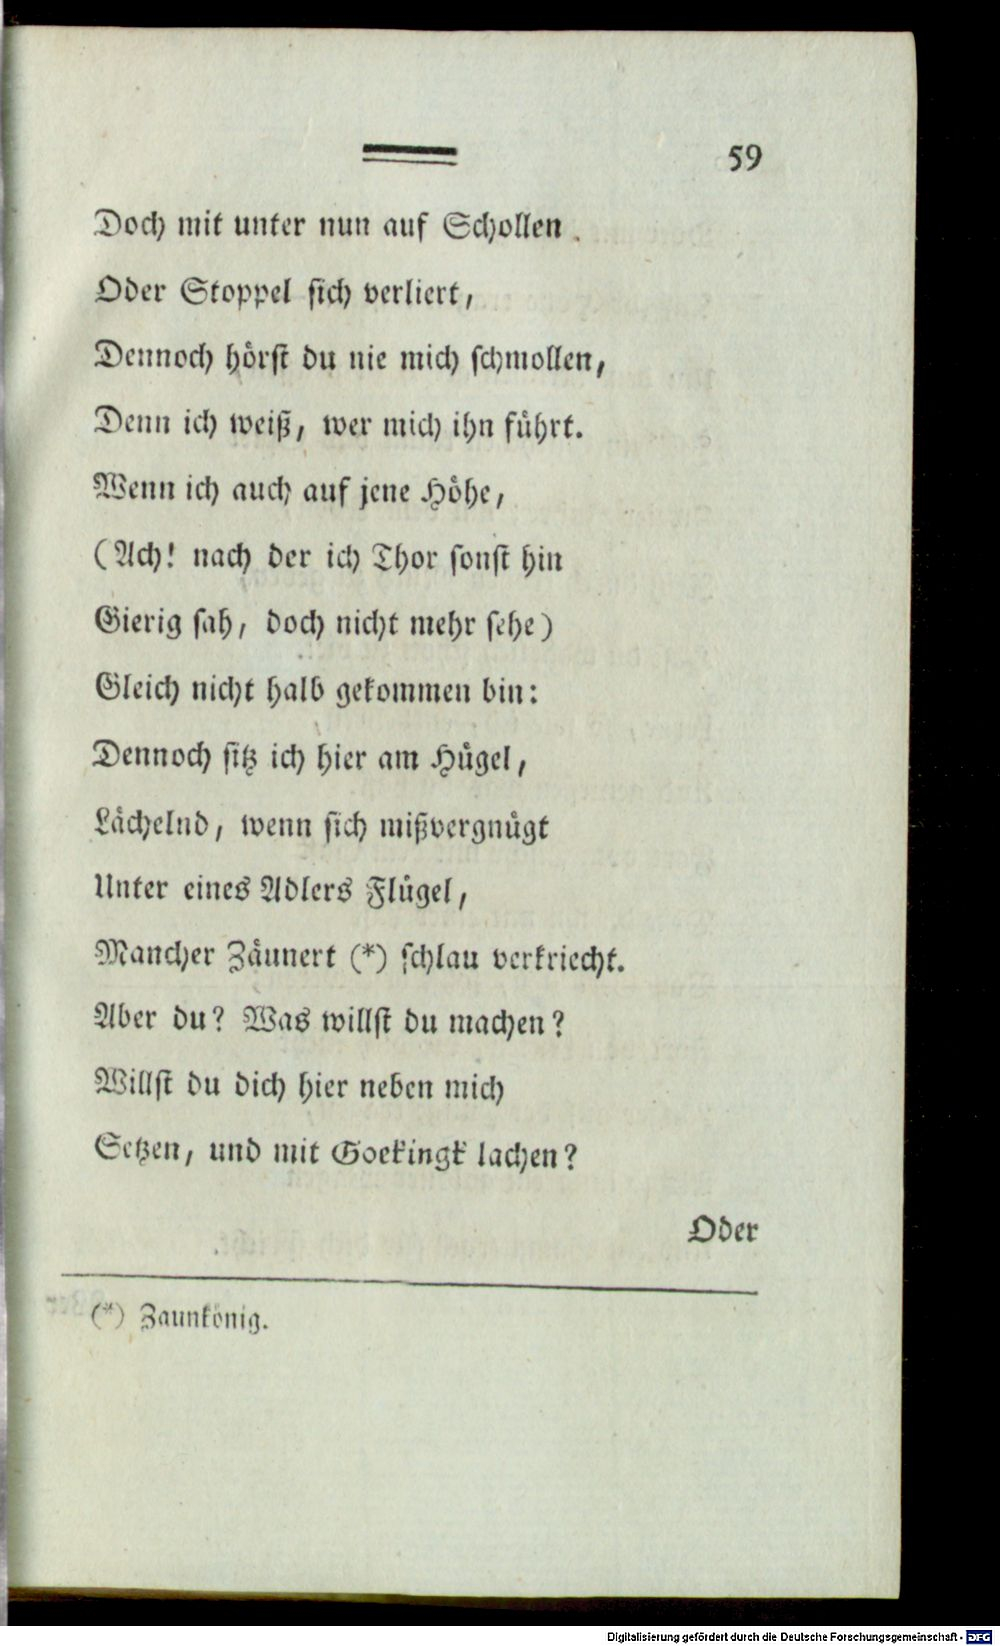 59
Doch mit unter nun auf Schollen
Oder Stoppel sich verliert,
Dennoch hörst du nie mich schmollen,
Denn ich weiß, wer mich ihn führt.
Wenn ich auch auf jene Höhe,
(Ach! nach der ich Thor sonst hin
Gierig sah, doch nicht mehr sehe)
Gleich nicht halb gekommen bin:
Dennoch sitz ich hier am Hügel,
Lächelnd, wenn sich mißvergnügt
Unter eines Adlers Flügel,
Mancher Zäunert (*) schlau verkriecht.
Aber du? Was willst du machen?
Willst du dich hier neben mich
Setzen, und mit Goekingk lachen?
Oder
(*) Zaunkönig.
Digitalisierung gefördert durch die Deutsche Forschungsgemeinschaft - DFG